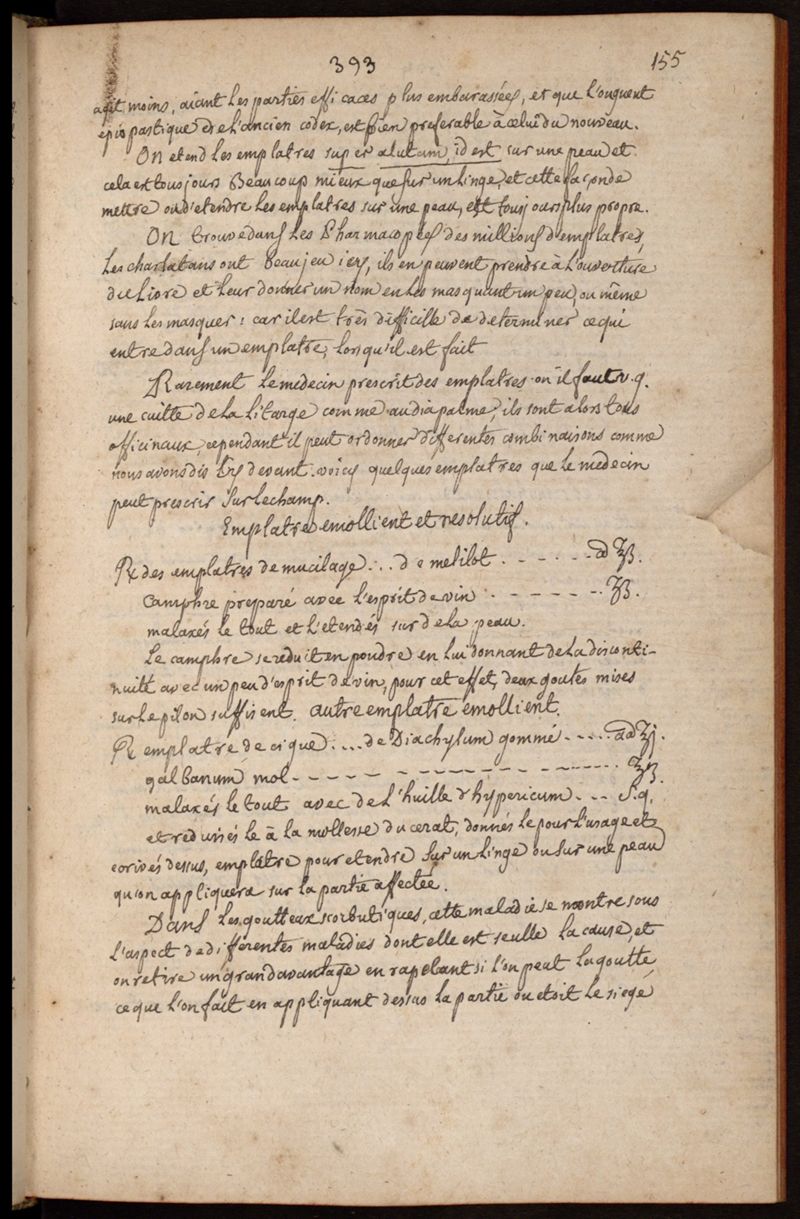 393 155
agit moins, aiant les parties efficaces plus embarassées, et que l'onguent
epispastique de l'ancien codex, est bien preferable à celui du nouveau.
On etend les emplatres super alutam, id est sur une peau et
cela est tousjours Beaucoup mieux que sur un linge, et cette facon de
mettre ou d'etendre les emplatres sur une peau, est tousjours plus propre.
On trouve dans les Pharmacopées des millions d'emplatres,
les charlatans ont beau jeu icy, ils en peuvent prendre à l'ouverture
du livre et leur donner un nom en les masquant un peu, ou même
sans les masquer : car il est très difficille de determiner ce qui
entre dans un emplatre, lorsqu'il est fait
Rarement le medecin prescrit des emplatres ou il faut v.g.
une cuitte de la litarge comme au diapalme, ils sont alors tous
officinaux, cependant il peut ordonner differentes combinaisons comme
nous avons dis cy devant. voicy quelques emplatres que le medecin
peut prescrir sur le champ.
Emplatre emollient et resolutif.
℞ des emplatres de mucilage ... de melilot . - - - - - - ad ℥ß.
Camphre preparé avec l'esprit de vin . - - - - - . . ʒß.
malaxés le tout et l'etendés sur de la peau.
Le camphre se reduit en poudre en lui donnant de la disconti-
nuité avec un peu d'esprit de vin, pour cet effet, deux goutes mises
sur le pilon suffisent. autre emplatre emollient.
℞ emplatre de cigue .... de Diachylum gommé - - - . . . . ad ℥j.
galbanum mol - - - - - - - - - - - - - - - - . . . ʒß.
malaxés le tout avec de l'huille d'hypericum - - . . S.q.
et reduisés le à la mollesse du cerat, donnés le pour l'usage et
ecrivés dessus, emplâtre pour etendre sur un linge ou sur une peau
qu'on appliquera sur la partie affectée.
Dans les goutteux scorbutiques, cette maladie se montre sous
l'aspect de differentes maladies dont elle est seulle la cause, et
on retire un grand avantage en rapelant si l'on peut la goutte,
ce que l'on fait en appliquant dessus la partie ou etoit le siege